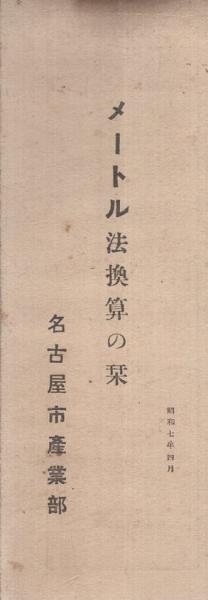 昭和七年四月
メートル法換算の栞
名古屋市產業部